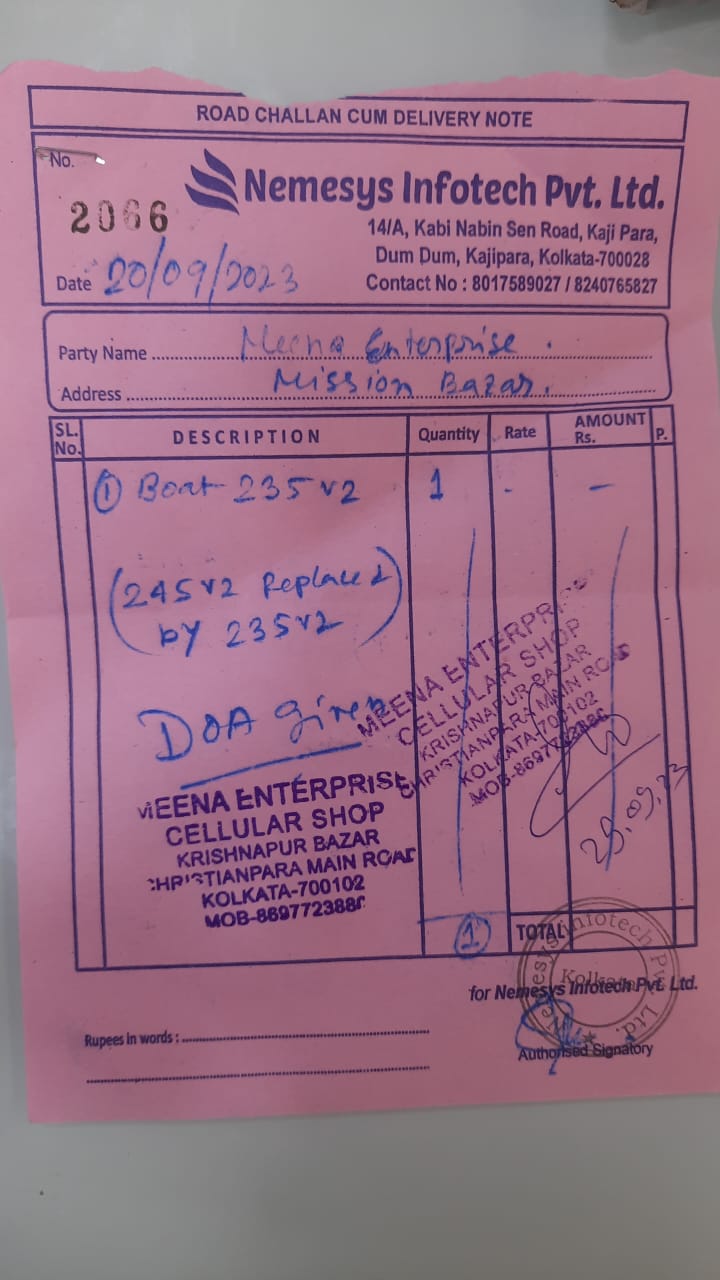 ROAD CHALLAN CUM DELIVERY NOTE
No.
2066
Nemesys Infotech Pvt. Ltd.
14/A, Kabi Nabin Sen Road, Kaji Para,
Dum Dum, Kajipara, Kolkata-700028
Contact No : 8017589027 / 8240765827
Date 20/09/2023
Party Name Meena Enterprise .
Address Mission Bazar.
SL. No. DESCRIPTION Quantity Rate AMOUNT Rs. P.
① Boat 235 v2 1 - -
(245v2 Replaced
by 235v2)
DOA given
MEENA ENTERPRISE
CELLULAR SHOP
KRISHNAPUR BAZAR
CHRISTIANPARA MAIN ROAD
KOLKATA-700102
MOB-869772388
MEENA ENTERPRISE
CELLULAR SHOP
KRISHNAPUR BAZAR
CHRISTIANPARA MAIN ROAD
KOLKATA-700102
1 TOTAL
Nemesys Infotech Pvt. Ltd.
Kolkata
for Nemesys Infotech Pvt. Ltd.
Rupees in words :
Authorised Signatory